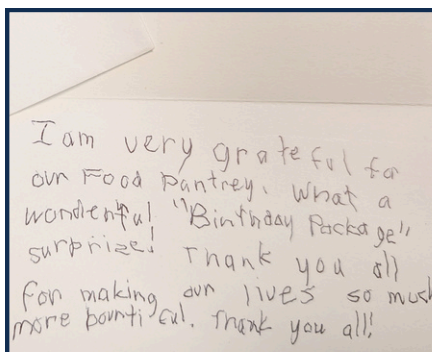 I am very grateful for
our Food Pantrey. What a
wonderful "Birthday Package"
surprize! Thank you all
for making our lives so much
more bountiful. Thank you all!